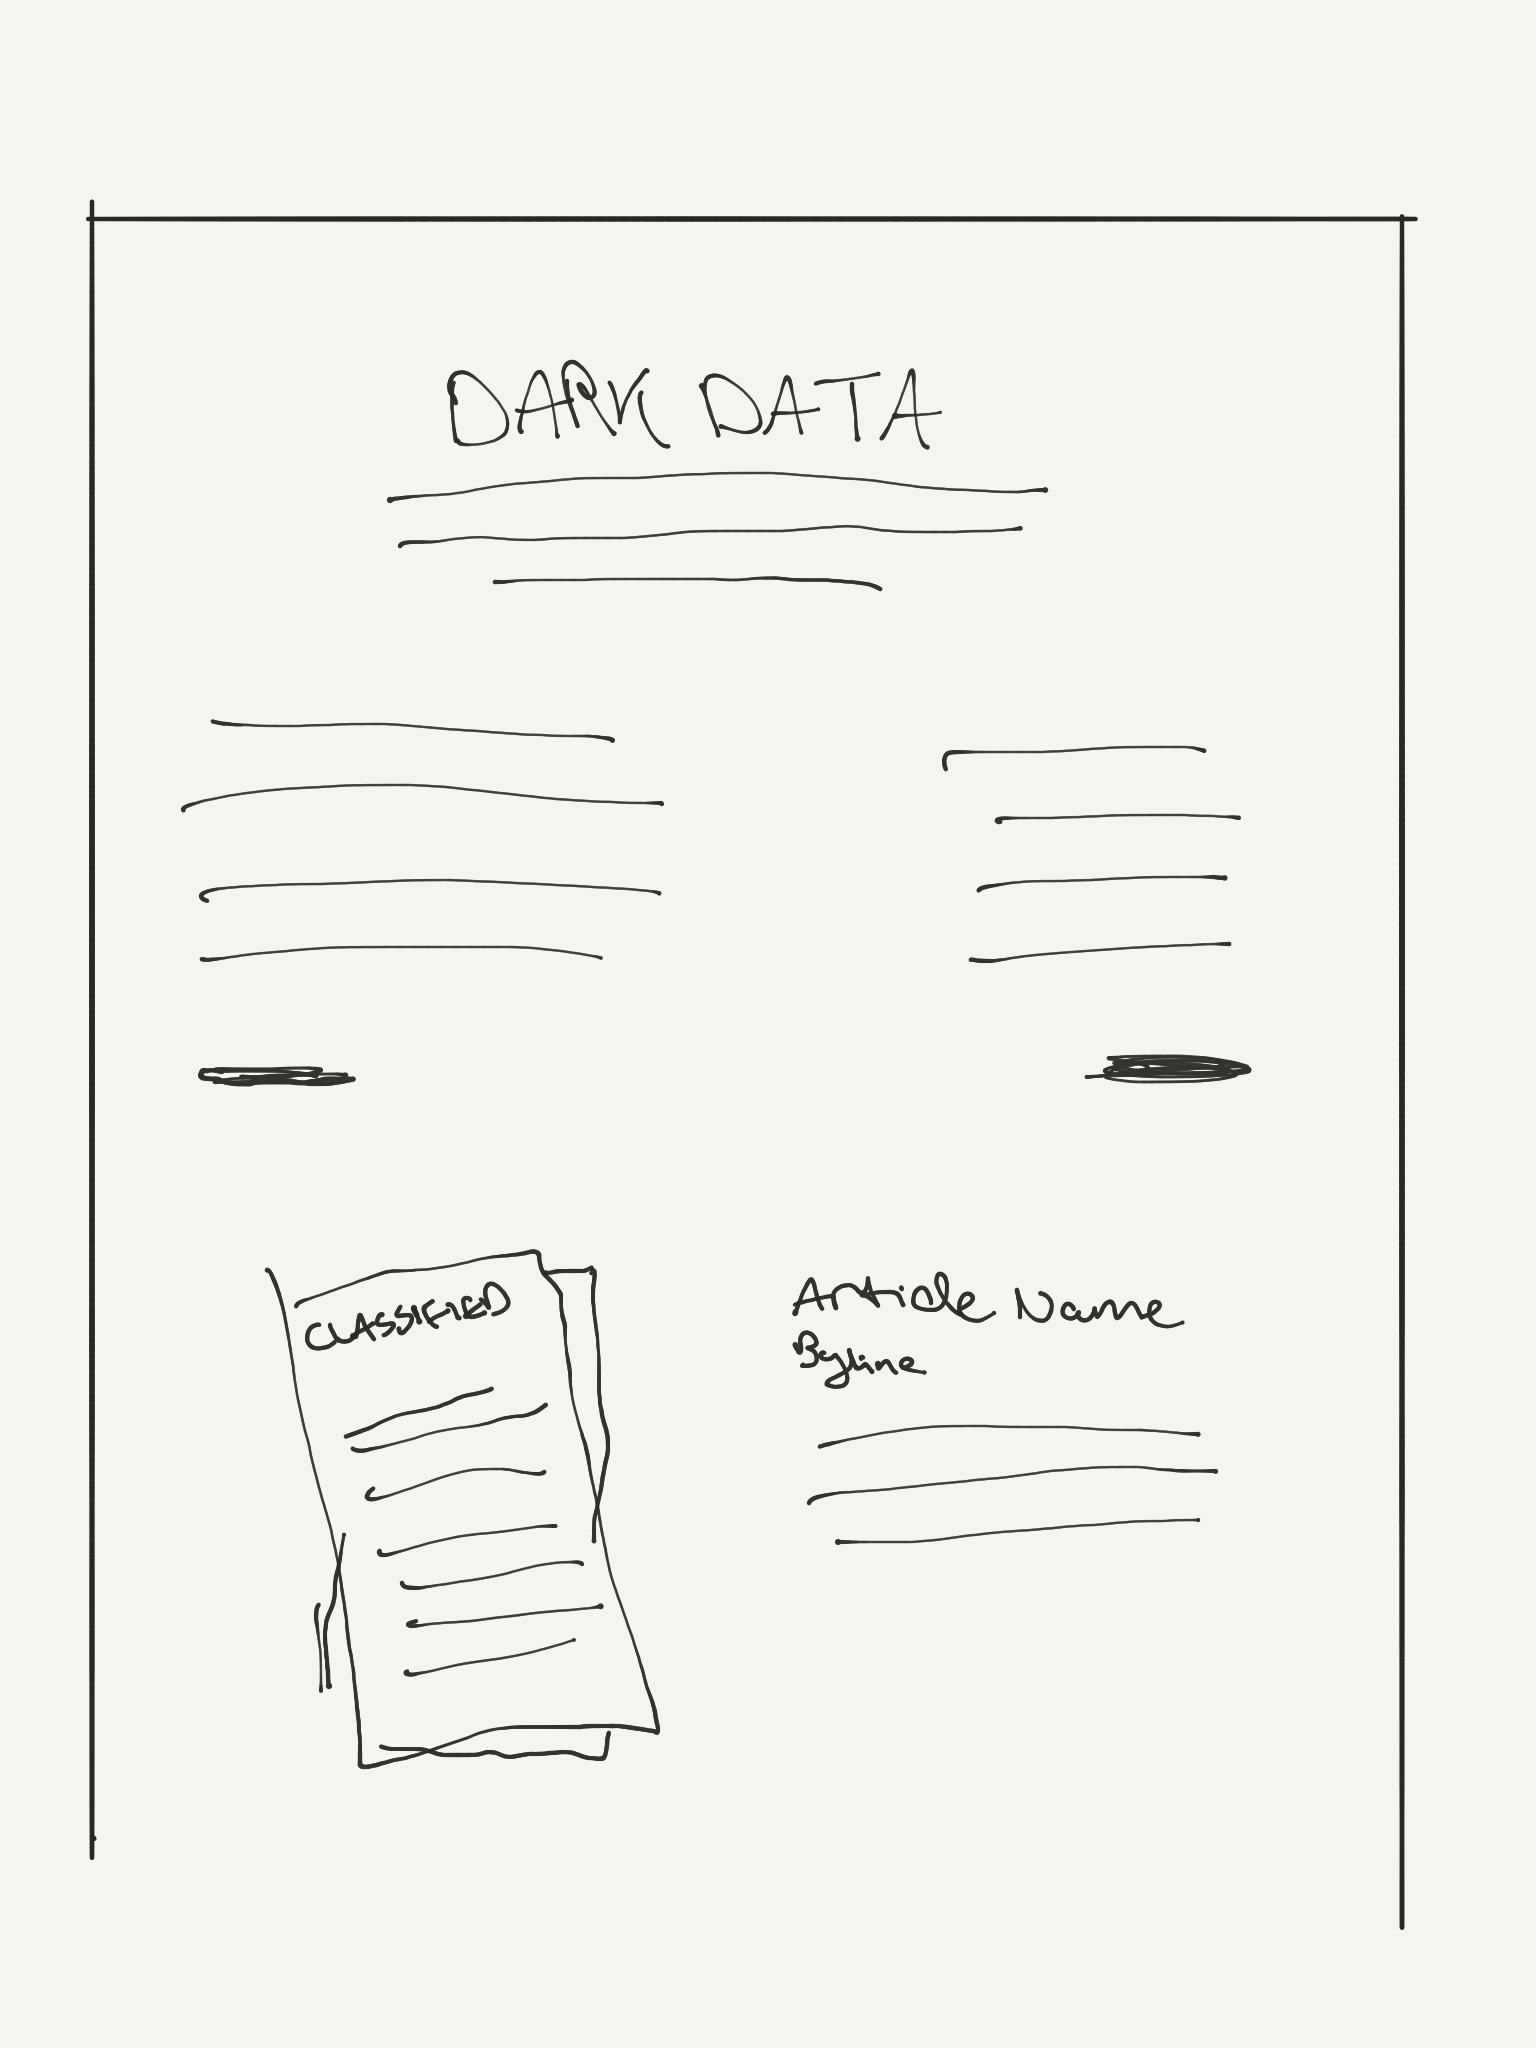 DARK DATA
CLASSIFIED
Article Name
Byline